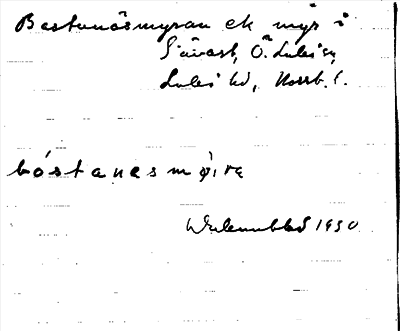 Bastanäsmyran ek myr i
Sävast, Ö. Luleå sn,
Luleå hd, Norrb. l.
bóstanesmø̀i,rę
1930